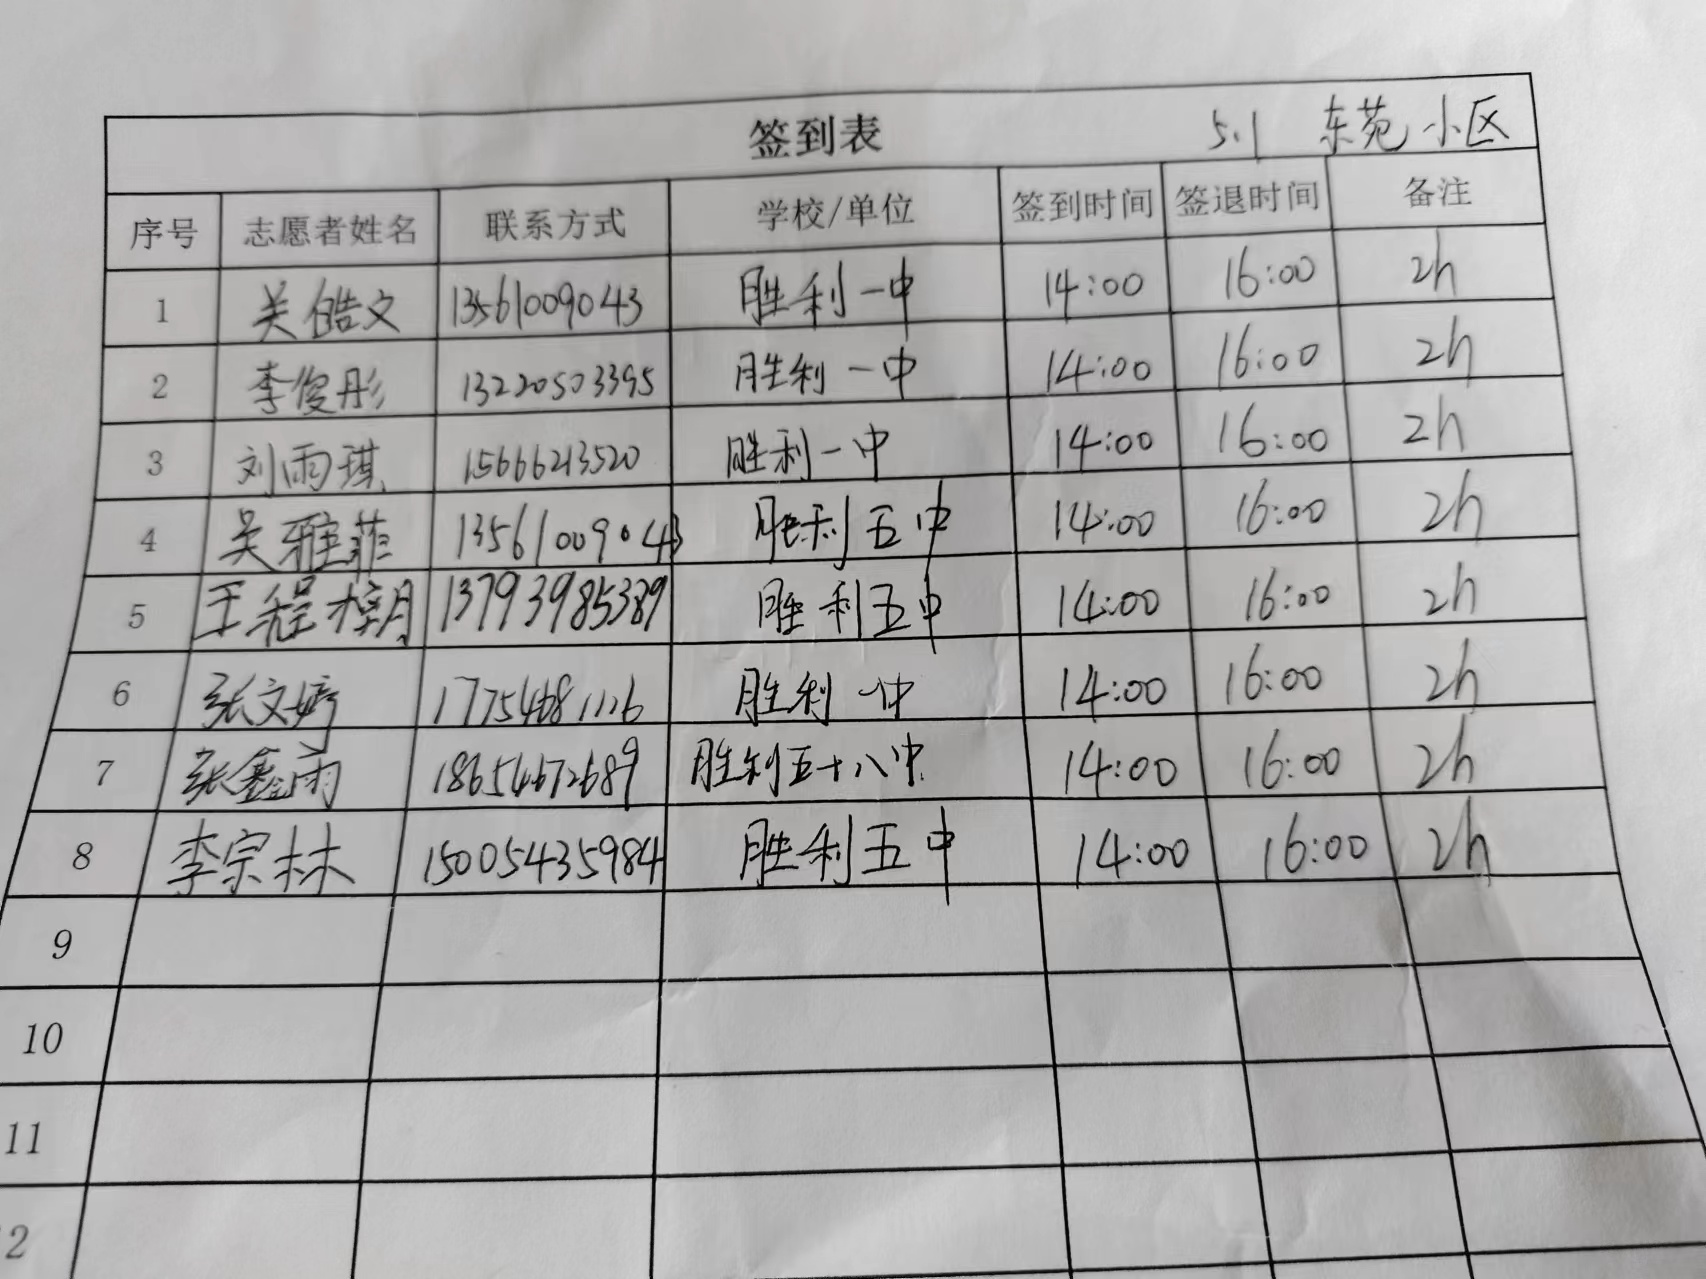 签到表 5.1 东苑小区
序号 志愿者姓名 联系方式 学校/单位 签到时间 签退时间 备注
1 吴皓文 13561009043 胜利一中 14:00 16:00 2h
2 李俊彤 13220503395 胜利一中 14:00 16:00 2h
3 刘雨琪 15666213520 胜利一中 14:00 16:00 2h
4 吴雅菲 13561009043 胜利五中 14:00 16:00 2h
5 王程 13793985389 胜利五中 14:00 16:00 2h
6 张文婷 胜利一中 14:00 16:00 2h
7 张鑫雨 18654672689 胜利五十八中 14:00 16:00 2h
8 李宗林 15005435984 胜利五中 14:00 16:00 2h
9
10
11
2